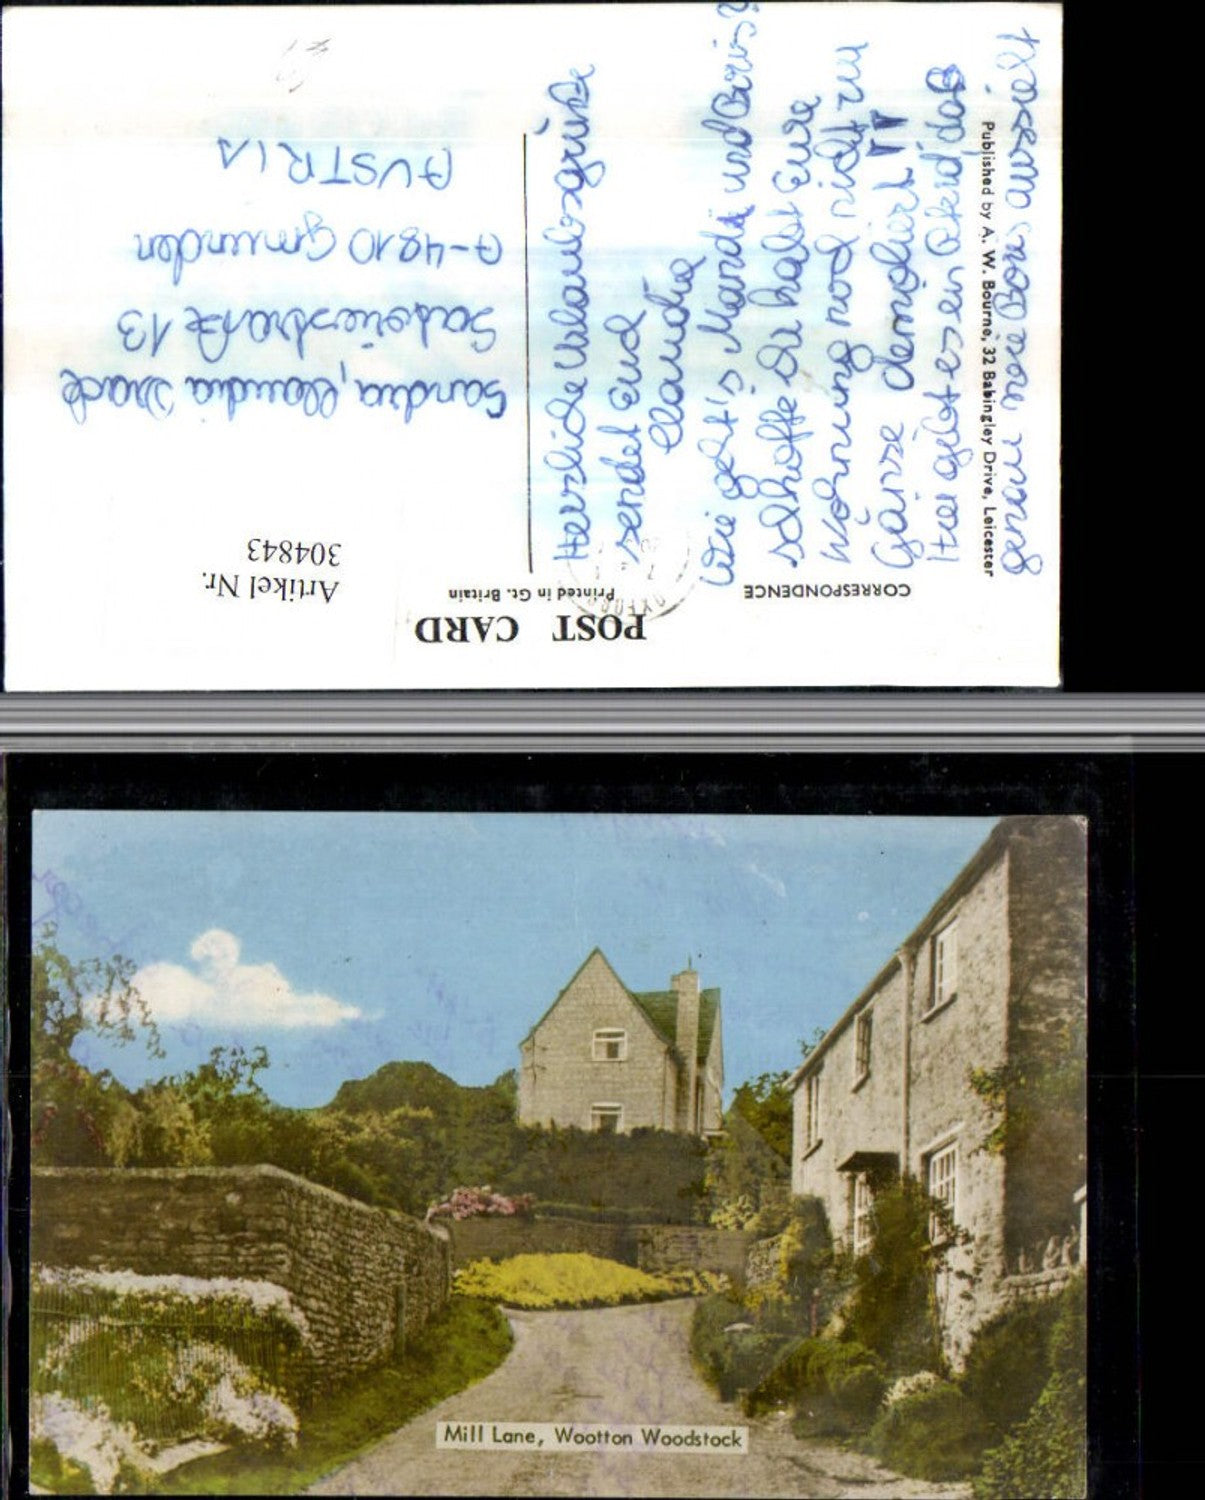 POST CARD
Printed in Gt. Britain
CORRESPONDENCE
Artikel Nr.
304843
OXFORD
Herzliche Urlaubsgrüße
sendet Euch
Claudia
Wie geht's Mandi und Boris?
Ich hoffe Ihr habt Eure
Wohnung noch nicht zur
Gänze demoliert!!
Hier gibt es en Kleid das
genau wie Boris aussieht
Published by A. W. Bourne, 32 Babingley Drive, Leicester
Sandra, Claudia
Satoristraße 13
A-4810 Gmunden
AUSTRIA
Mill Lane, Wootton Woodstock